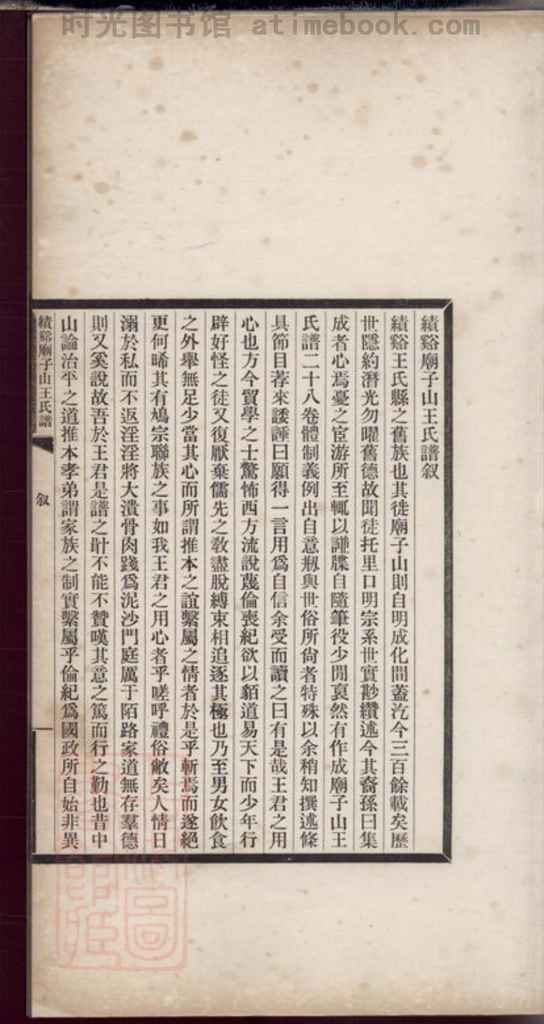 时光图书馆 atimebook.com
績谿廟子山王氏譜叙
績谿王氏縣之舊族也其徙廟子山則自明成化間蓋汔今三百餘載矣歷
世隱約潛光勿曜舊德故聞徒托里口明宗系世實尠纘述今其裔孫曰集
成者心焉憂之宦游所至輒以譜牒自隨筆役少閒裒然有作成廟子山王
氏譜二十八卷體制義例出自意剏與世俗所尙者特殊以余稍知撰述條
具節目荐來諉諈曰願得一言用爲自信余受而讀之曰有是哉王君之用
心也方今貿學之士驚怖西方流說蔑倫喪紀欲以貊道易天下而少年行
辟好怪之徒又復厭棄儒先之敎盡脫縛束相追逐其極也乃至男女飲食
之外舉無足少當其心而所謂推本之誼繫屬之情者於是乎斬焉而遂絕
更何晞其有鳩宗聯族之事如我王君之用心者乎嗟呼禮俗敝矣人情日
溺於私而不返淫淫將大潰骨肉踐爲泥沙門庭厲于陌路家道無存羣德
則又奚說故吾於王君是譜之眂不能不贊嘆其意之篤而行之勤也昔中
山論治平之道推本孝弟謂家族之制實繫屬乎倫紀爲國政所自始非異
績谿廟子山王氏譜
叙